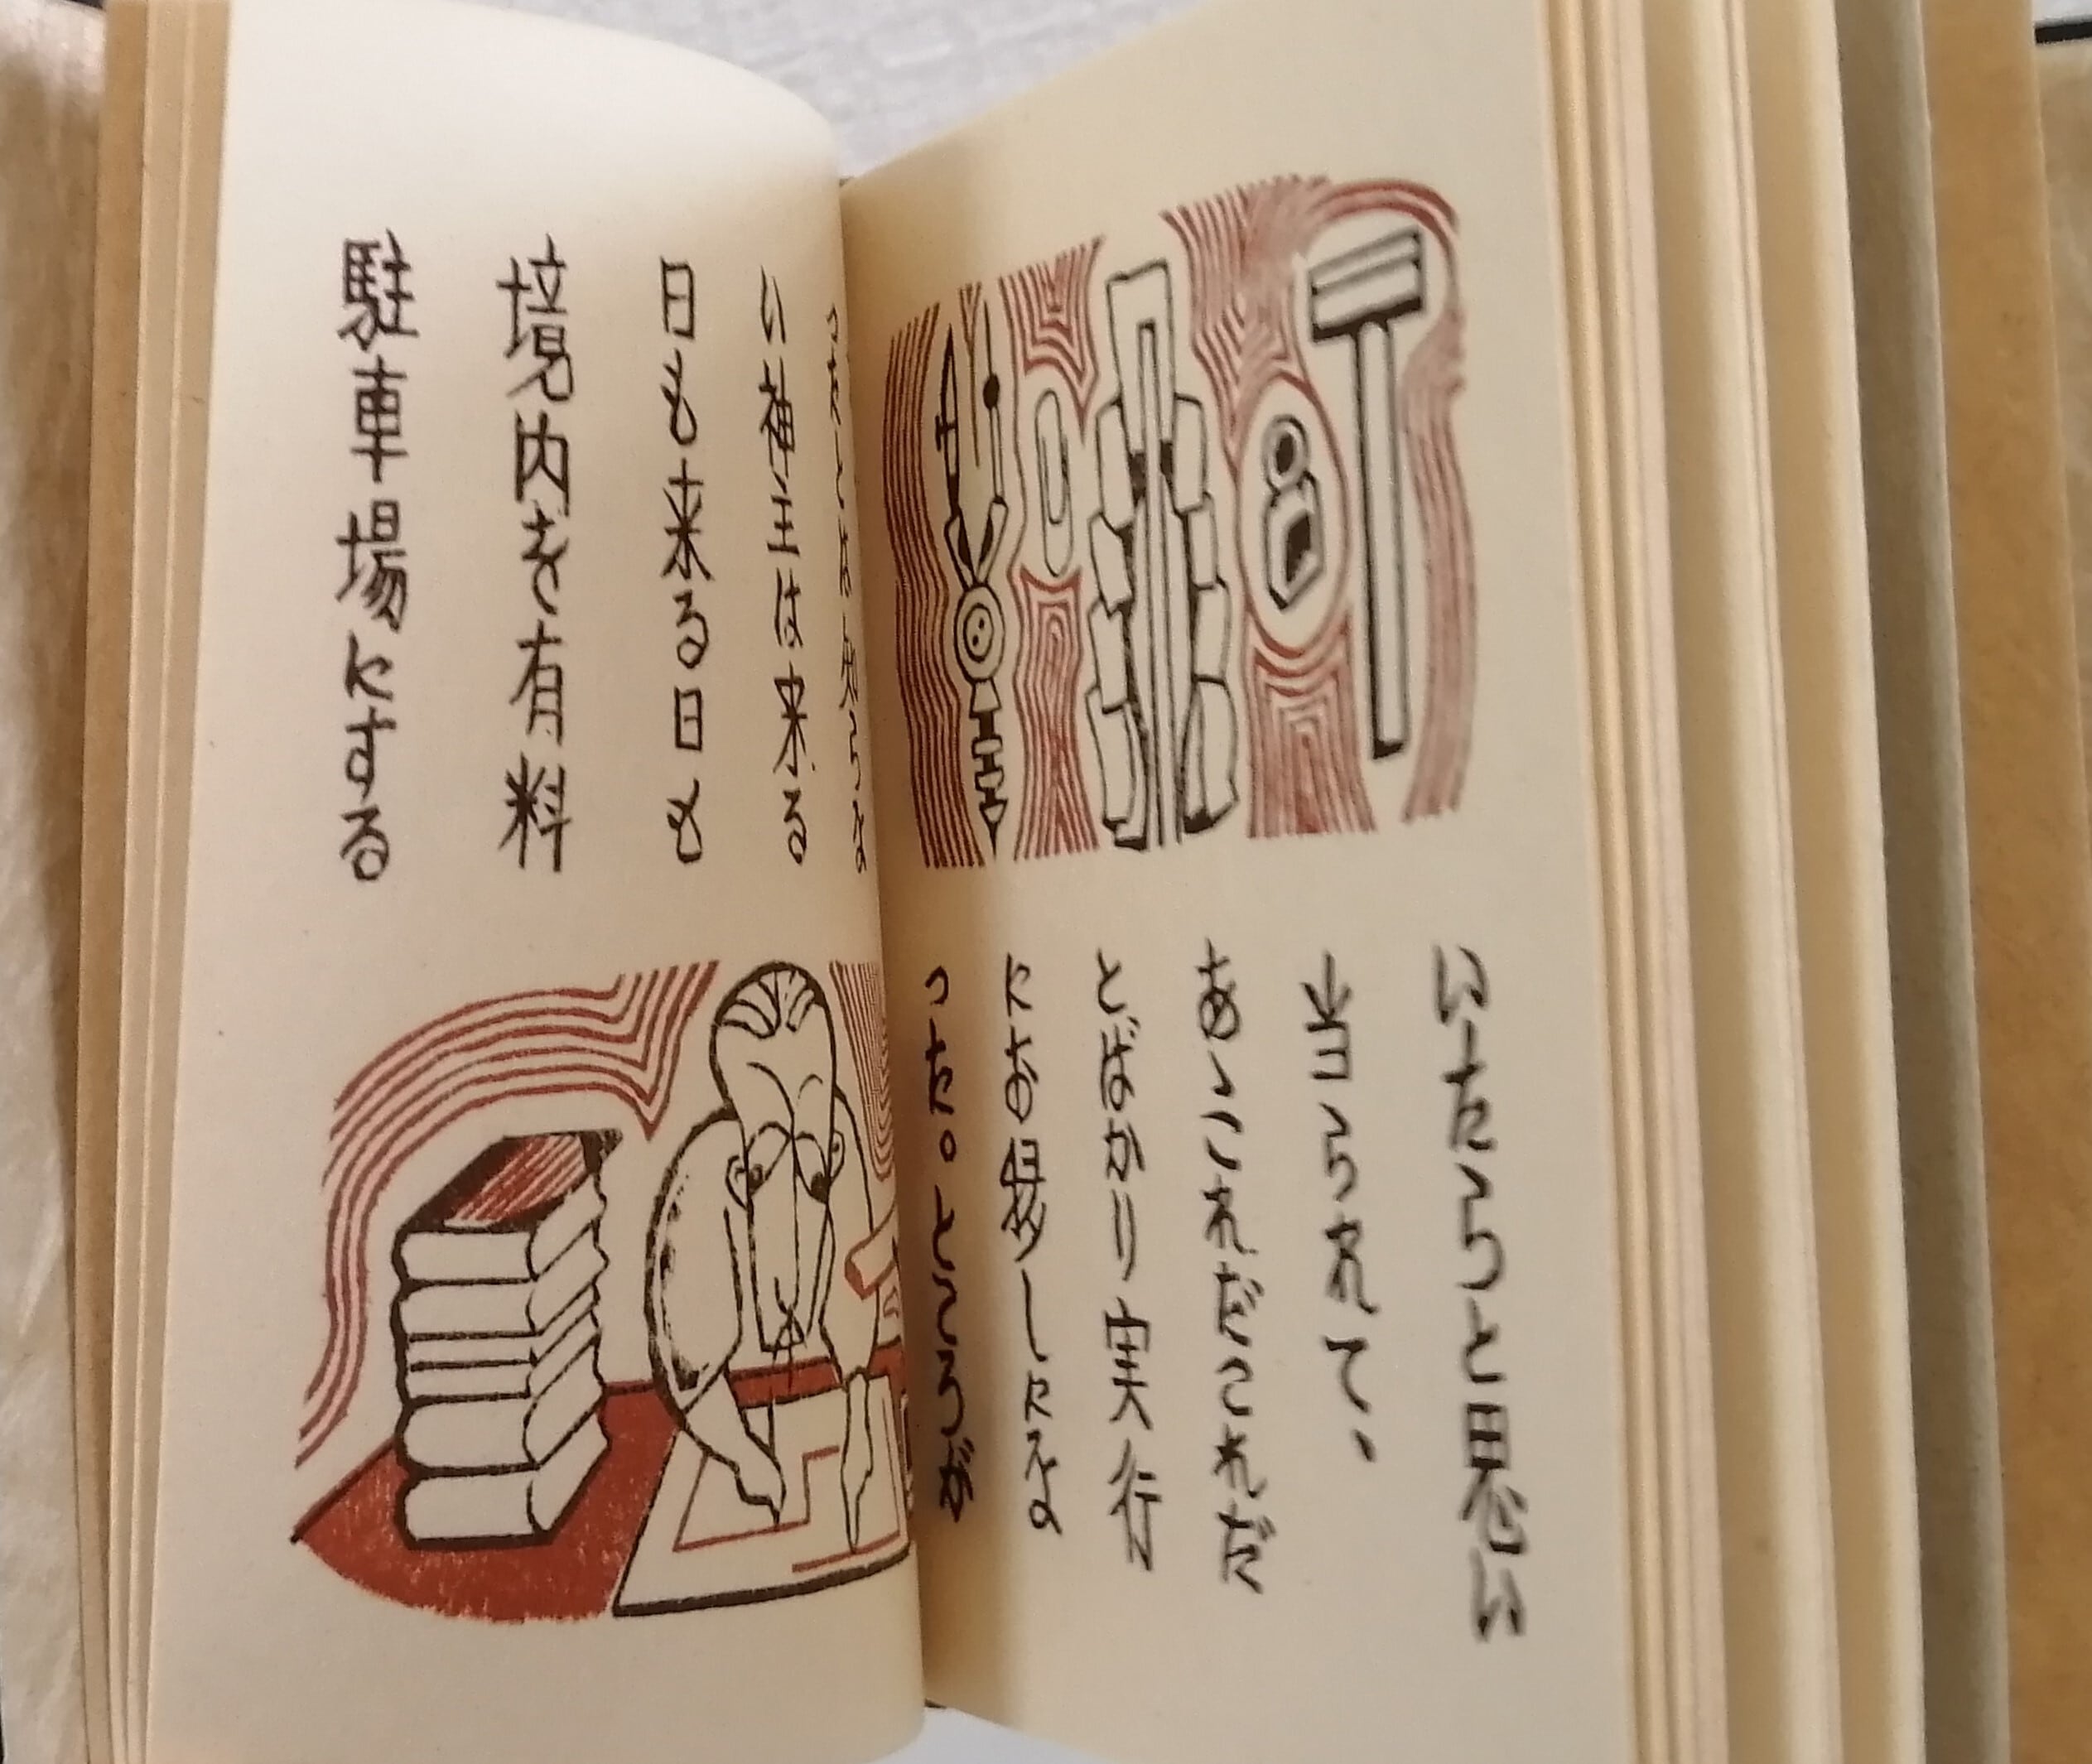 いたらと思い
当られて、
あゝこれだこれだ
とばかり実行
にお移しにな
った。ところが
ったとは知らな
い神主は来る
日も来る日も
境内を有料
駐車場にする